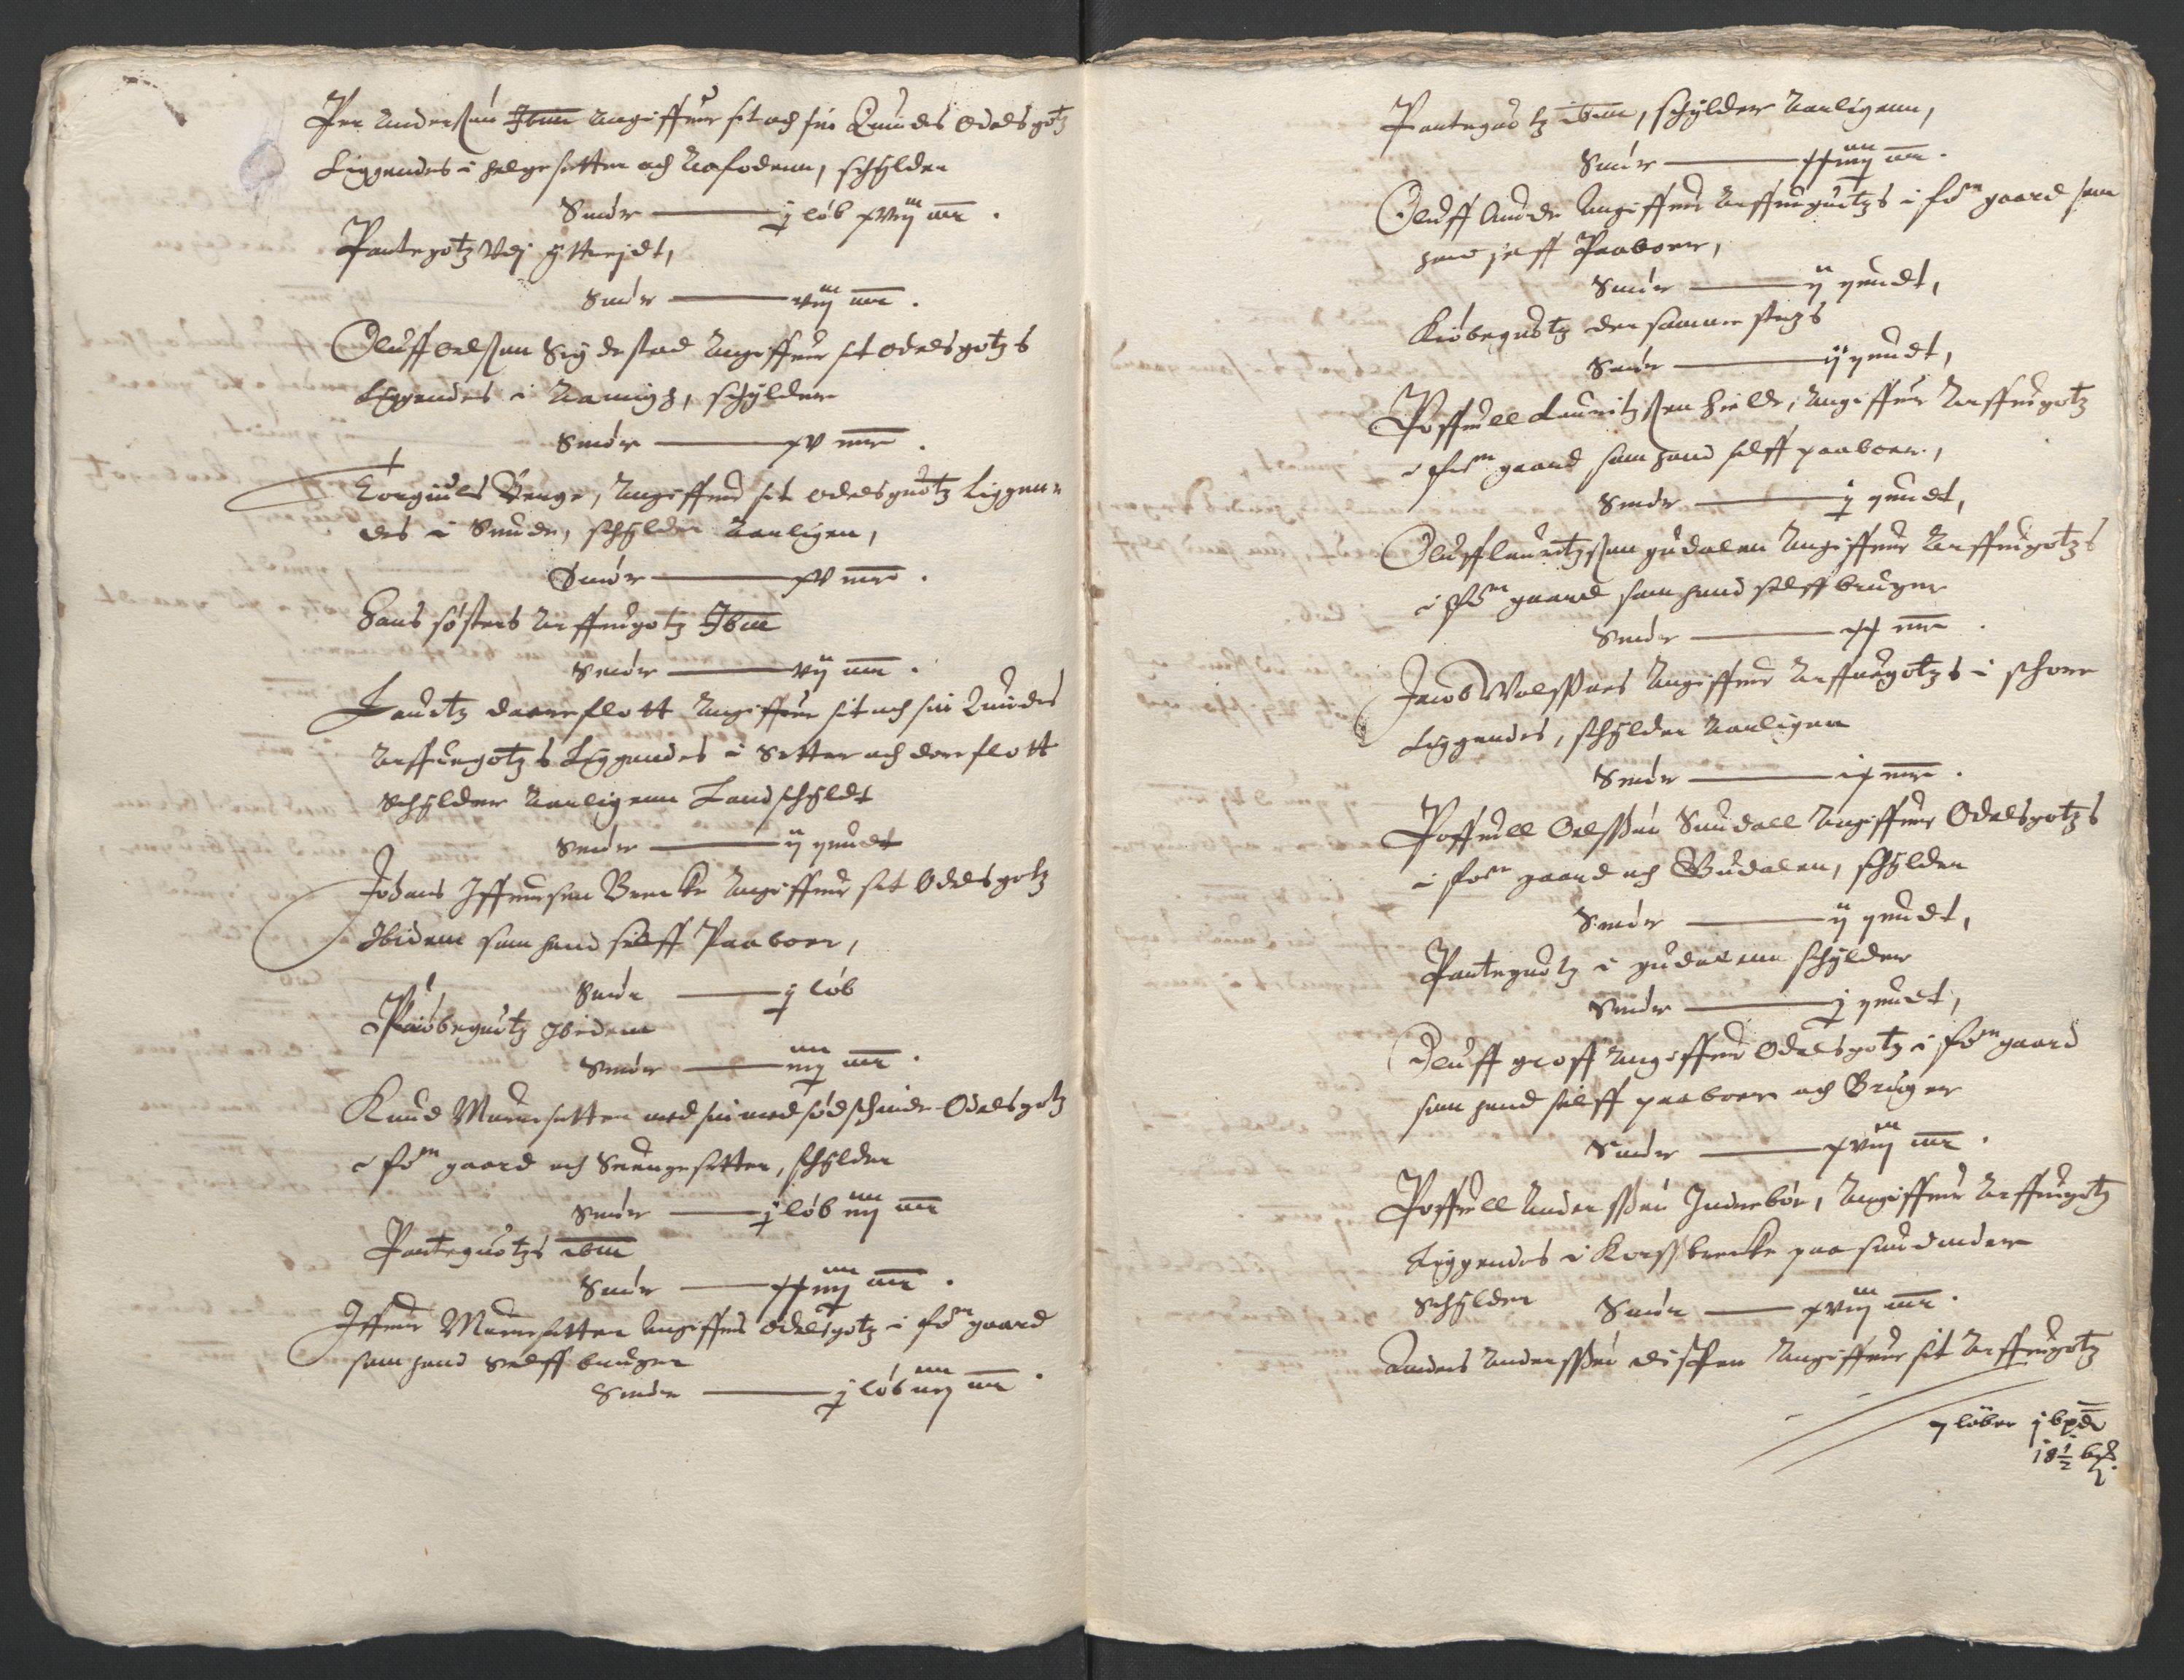 Per Anderßen Ibm Angiffuer sit och sin Quindes odels gotz
Liggendes i helgesetter och Aafodenn, schylder
Smør —— j løb xviij mr.
Pantegotz vdj yttrejdt,
Smør —— viij mr.
Oluff oelßen Sÿdestad Angiffuer sit odelsgotzs
Liggendes i schylder
Smør —— xv mr.
Torgiuls Berge, Angiffuer sit odelsguotz Liggen-
des i Sunde, schylder aarligen,
Smør —— xv mr.
Hans søsters Arffuegotz Ibm
Smør —— vij mr.
Lauritz dareflott Angiffuer sit och sin Quindes
Arffuegotzs Liggendes i Setter och dareflott
Schylder Aarligenn Landschyldt
Smør —— ij pundt
Johans Iffuersen Brecke Angiffuer sit Odelsgotz
Ibidem som hand selff Paaboer,
Smør —— j løb
Kiøbeguotz Ibidem
Smør —— iiij mr.
Knud Murersetter med sin med sødschinde Odelsgotz
i forne gaard och Suingesetter, schylder
Smør —— j løb iiij mr
Panteguotzs ibm
Smør —— xxiiij mr.
Iffuer Murersetter Angiffuer odelsgotz i forne gaard
som hand selff bruger
Smør —— j løb iiij mr.
Panteguotz ibm, schylder Aarligenn,
Smør —— xxiiij mr.
Oluff Aude Angiffuer Arffueguotzs i forne gaard som
hand selff Paaboer,
Smør —— ij pundt,
Kiøbeguotz der samme stegs
Smør —— ij pundt,
Poffuell Lauritzßen hielde, Angiffuer Arffuegotz
i forne gaard som hand selff paaboer,
Smør —— j pundt,
Oluff lauritzßen gudalen Angiffuer Arffuegotzs
i forne gaard som hand selff bruger
Smør —— xx mr.
Jacob Angiffuer Arffuegotzs i schore
Liggendes, schylder Aarligen
Smør —— ix mr.
Poffuell Oelßøn Sundall Angiffuer Odelsgotzs
i forne gaard och Gudalen, schylder
Smør —— ij pundt,
Panteguotz i gudalenn schylder
Smør —— j pundt,
Oluff groff Angiffuer Odelsgotz i forne gaard
som hand selff paaboer och Bruger
Smør —— xviij mr.
Poffuell Anderßøn Indrebør, Angiffuer Arffuegotz
Liggendes i Korßbrecke paa sundmør
Schylder Smør —— xviij mr.
Anders Anderßøn Angiffuer sit Arffuegotz
7 løber j bpd
18½ b